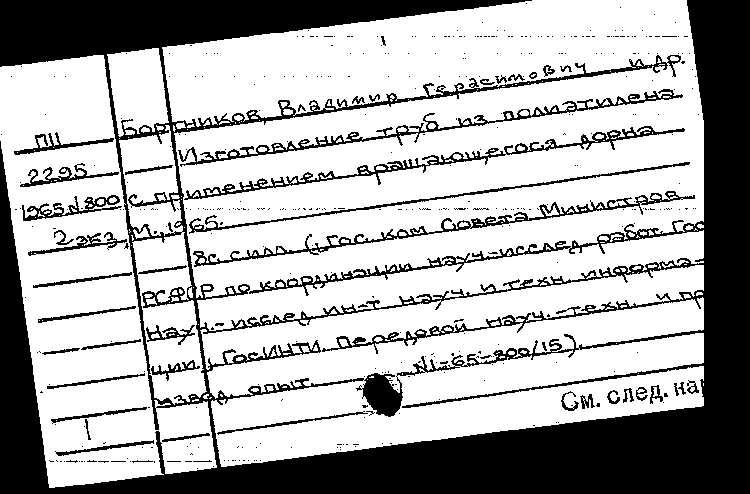 Бортников, Владимир Герасимович и др.
П11 Изготовление труб из полиэтилена
2295 с применением вращающегося дорна
1965 N.800 М., 1965.
2 экз. 8с. с илл. (Гос. ком Совета Министров
РСФСР по координации науч.-исслед. работ. Гос
науч.-исслед ин-т науч. и техн. информа-
ции. ГОСИНТИ. Передовой науч.-техн. и пр
извод. опыт. N1-65-800/15).
1
См. след. нар